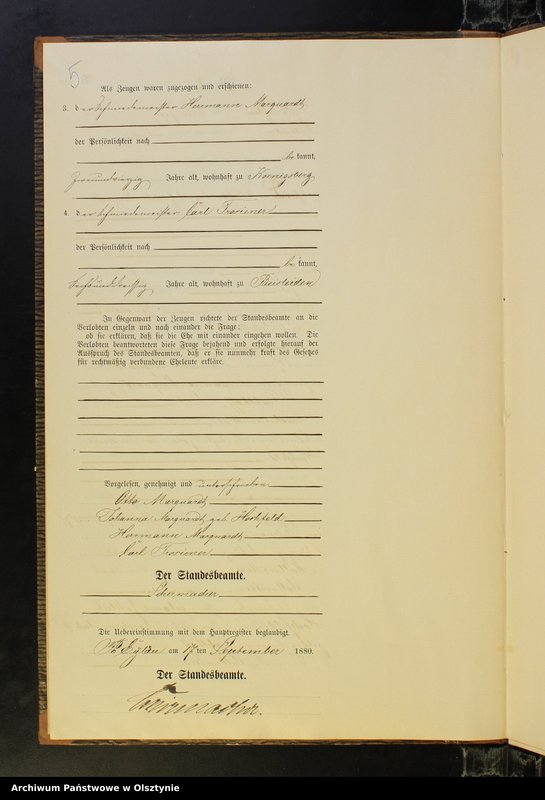 5
Als Zeugen waren zugezogen und erschienen:
3. der Schmiedemeister Herrmann Marquardt
der Persönlichkeit nach
be kannt,
zweiundvierzig Jahre alt, wohnhaft zu Koenigsberg
4. der Schmiedemeister Carl Troviener
der Persönlichkeit nach
be kannt,
sechsunddreissig Jahre alt, wohnhaft zu
In Gegenwart der Zeugen richtete der Standesbeamte an die
Verlobten einzeln und nach einander die Frage:
ob sie erklären, daß sie die Ehe mit einander eingehen wollen. Die
Verlobten beantworteten diese Frage bejahend und erfolgte hierauf der
Ausspruch des Standesbeamten, daß er sie nunmehr kraft des Gesetzes
für rechtmäßig verbundene Eheleute erkläre.
Vorgelesen, genehmigt und unterschrieben
Otto Marquardt
Johanna Marquardt geb. Hochfeld
Herrmann Marquardt
Carl Troviener
Der Standesbeamte.
Die Uebereinstimmung mit dem Hauptregister beglaubigt.
Pr. Eylau am 17 ten September 1880.
Der Standesbeamte.
Archiwum Państwowe w Olsztynie